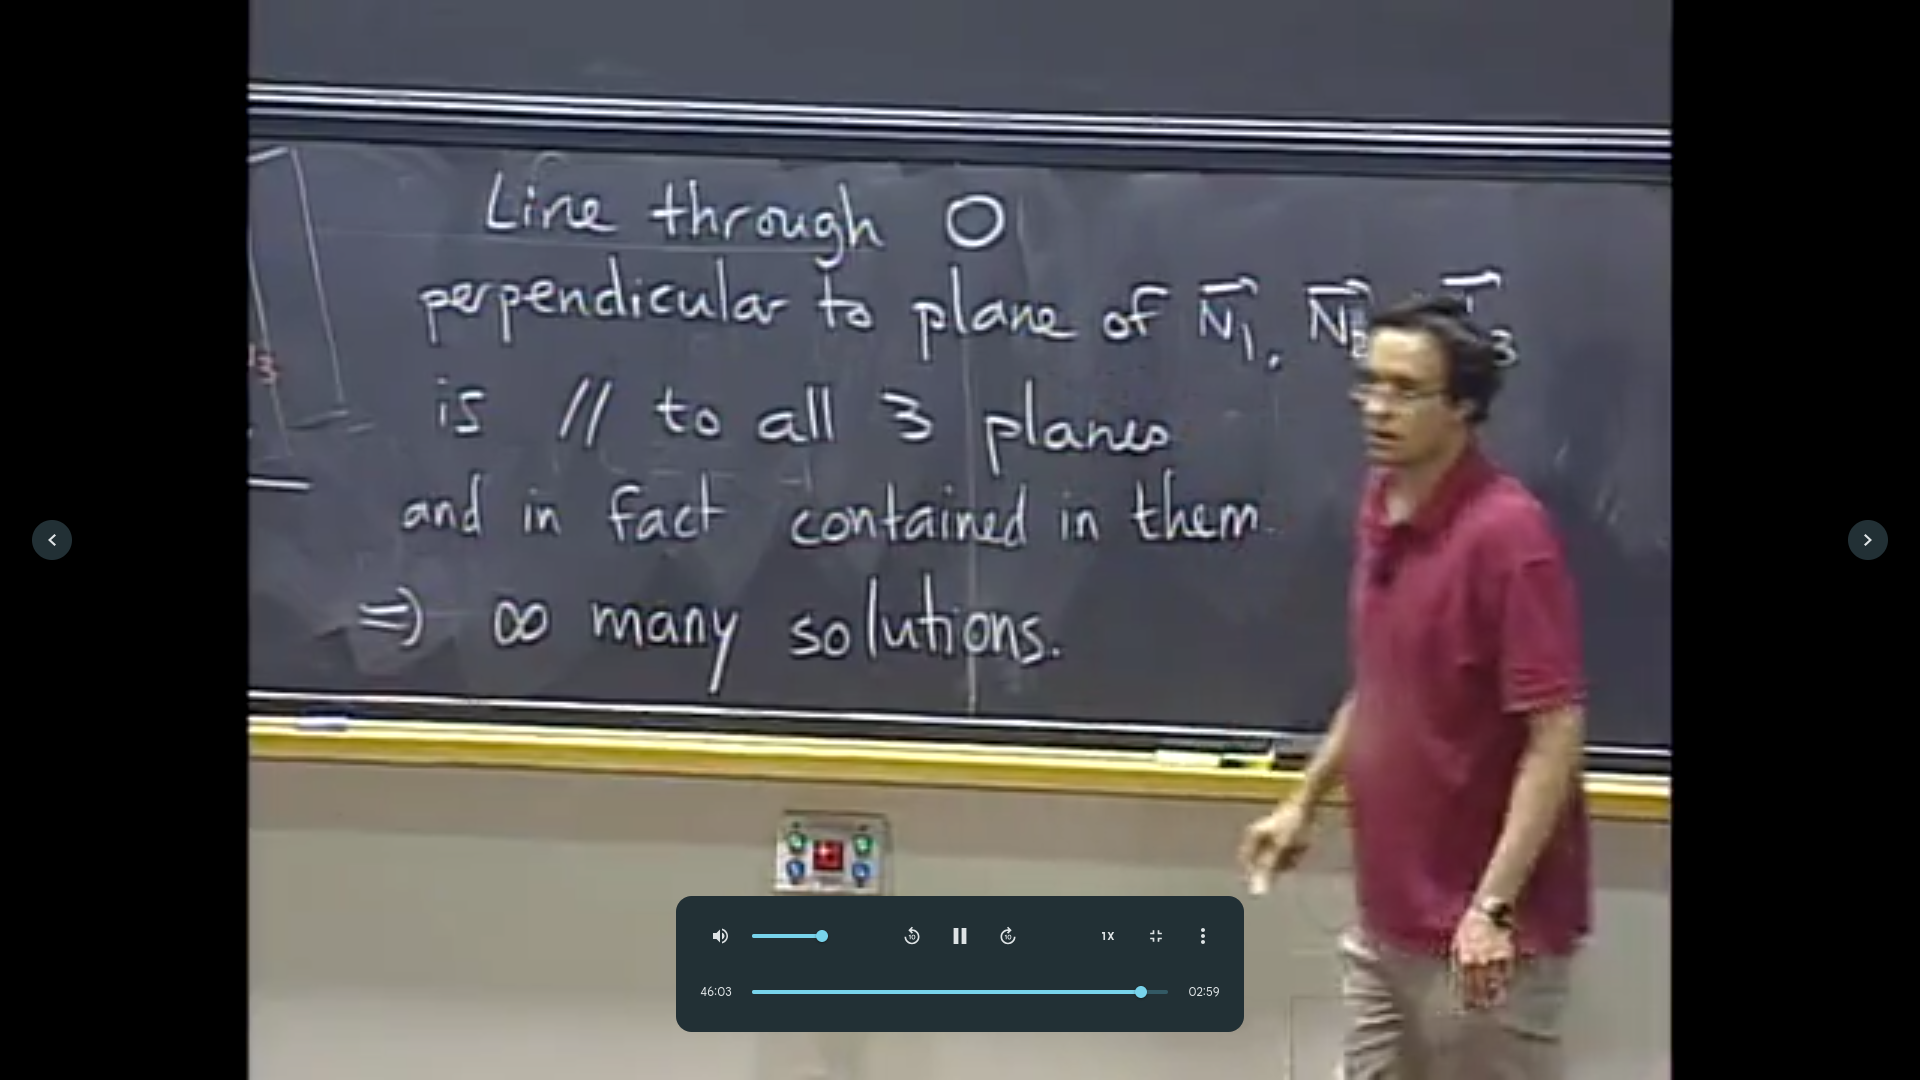 Line through O
perpendicular to plane of N⃗₁, N⃗₂, ₃
is // to all 3 planes
and in fact contained in them.
⇒ ∞ many solutions.
13
10
10
1X
46:03
02:59